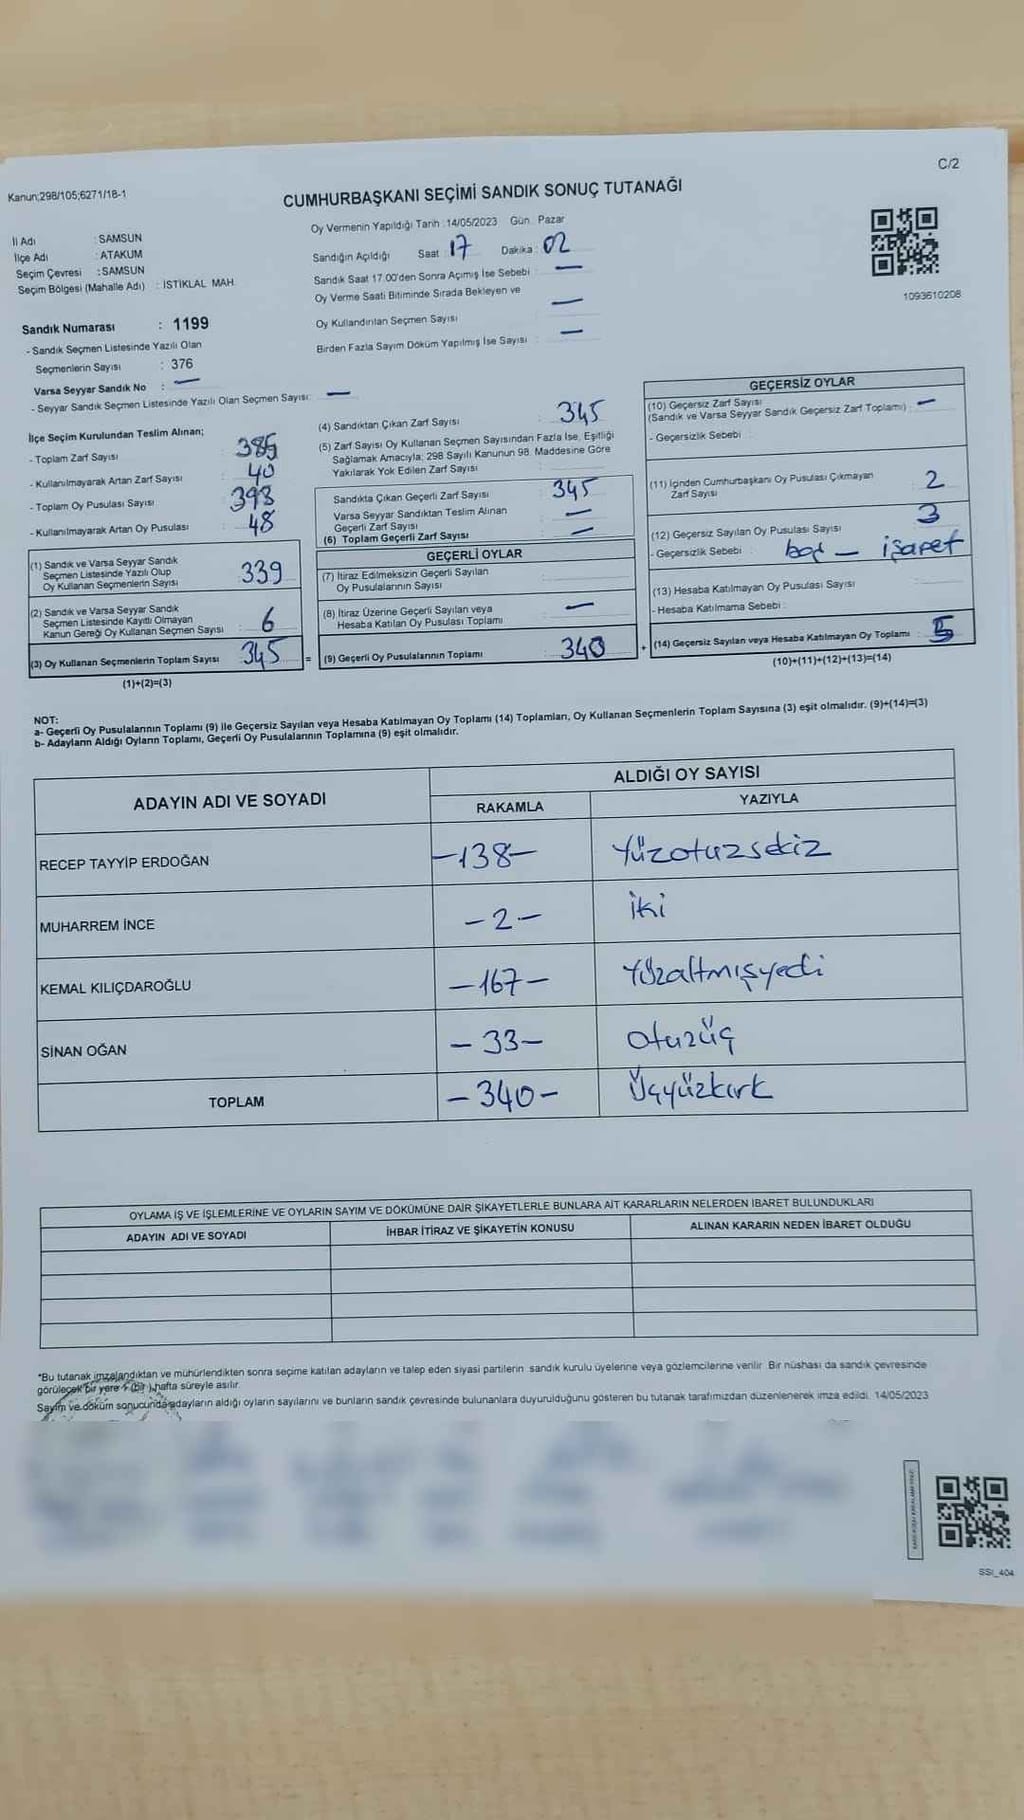 C/2
Kanun;298/105;6271/18-1
CUMHURBAŞKANI SEÇİMİ SANDIK SONUÇ TUTANAĞI
Oy Vermenin Yapıldığı Tarih :14/05/2023 Gün. Pazar
İl Adı : SAMSUN
İlçe Adı : ATAKUM
Seçim Çevresi : SAMSUN
Seçim Bölgesi (Mahalle Adı) : İSTİKLAL MAH.
Sandık Numarası : 1199
- Sandık Seçmen Listesinde Yazılı Olan
Seçmenlerin Sayısı : 376
Varsa Seyyar Sandık No : —
- Seyyar Sandık Seçmen Listesinde Yazılı Olan Seçmen Sayısı: —
Sandığın Açıldığı Saat : 17 Dakika : 02
Sandık Saat 17.00'den Sonra Açımış İse Sebebi : —
Oy Verme Saati Bitiminde Sırada Bekleyen ve
Oy Kullandırılan Seçmen Sayısı : —
Birden Fazla Sayım Döküm Yapılmış İse Sayısı : —
1093610208
İlçe Seçim Kurulundan Teslim Alınan;
- Toplam Zarf Sayısı : 385
- Kullanılmayarak Artan Zarf Sayısı : 40
- Toplam Oy Pusulası Sayısı : 393
- Kullanılmayarak Artan Oy Pusulası : 48
(1) Sandık ve Varsa Seyyar Sandık
Seçmen Listesinde Yazılı Olup
Oy Kullanan Seçmenlerin Sayısı : 339
(2) Sandık ve Varsa Seyyar Sandık
Seçmen Listesinde Kayıtlı Olmayan
Kanun Gereği Oy Kullanan Seçmen Sayısı : 6
(3) Oy Kullanan Seçmenlerin Toplam Sayısı : 345 =
(1)+(2)=(3)
(4) Sandıktan Çıkan Zarf Sayısı : 345
(5) Zarf Sayısı Oy Kullanan Seçmen Sayısından Fazla İse, Eşitliği
Sağlamak Amacıyla; 298 Sayılı Kanunun 98. Maddesine Göre
Yakılarak Yok Edilen Zarf Sayısı :
Sandıkta Çıkan Geçerli Zarf Sayısı : 345
Varsa Seyyar Sandıktan Teslim Alınan
Geçerli Zarf Sayısı : —
(6) Toplam Geçerli Zarf Sayısı : —
GEÇERLİ OYLAR
(7) İtiraz Edilmeksizin Geçerli Sayılan
Oy Pusulalarının Sayısı :
(8) İtiraz Üzerine Geçerli Sayılan veya
Hesaba Katılan Oy Pusulası Toplamı : —
(9) Geçerli Oy Pusulalarının Toplamı : 340 +
GEÇERSİZ OYLAR
(10) Geçersiz Zarf Sayısı
(Sandık ve Varsa Seyyar Sandık Geçersiz Zarf Toplamı) : —
- Geçersizlik Sebebi :
(11) İçinden Cumhurbaşkanı Oy Pusulası Çıkmayan
Zarf Sayısı : 2
(12) Geçersiz Sayılan Oy Pusulası Sayısı : 3
- Geçersizlik Sebebi : boş — işaret
(13) Hesaba Katılmayan Oy Pusulası Sayısı :
- Hesaba Katılmama Sebebi :
(14) Geçersiz Sayılan veya Hesaba Katılmayan Oy Toplamı : 5
(10)+(11)+(12)+(13)=(14)
NOT:
a- Geçerli Oy Pusulalarının Toplamı (9) ile Geçersiz Sayılan veya Hesaba Katılmayan Oy Toplamı (14) Toplamları, Oy Kullanan Seçmenlerin Toplam Sayısına (3) eşit olmalıdır. (9)+(14)=(3)
b- Adayların Aldığı Oyların Toplamı, Geçerli Oy Pusulalarının Toplamına (9) eşit olmalıdır.
ADAYIN ADI VE SOYADI
ALDIĞI OY SAYISI
RAKAMLA YAZIYLA
RECEP TAYYİP ERDOĞAN -138- Yüzotuzsekiz
MUHARREM İNCE -2- İki
KEMAL KILIÇDAROĞLU -167- Yüzaltmışyedi
SİNAN OĞAN -33- Otuzüç
TOPLAM -340- Üçyüzkırk
OYLAMA İŞ VE İŞLEMLERİNE VE OYLARIN SAYIM VE DÖKÜMÜNE DAİR ŞİKAYETLERLE BUNLARA AİT KARARLARIN NELERDEN İBARET BULUNDUKLARI
ADAYIN ADI VE SOYADI İHBAR İTİRAZ VE ŞİKAYETİN KONUSU ALINAN KARARIN NEDEN İBARET OLDUĞU
*Bu tutanak imzalandıktan ve mühürlendikten sonra seçime katılan adayların ve talep eden siyasi partilerin sandık kurulu üyelerine veya gözlemcilerine verilir. Bir nüshası da sandık çevresinde
görülecek bir yere 1 (bir) hafta süreyle asılır.
Sayım ve döküm sonucunda adayların aldığı oyların sayılarını ve bunların sandık çevresinde bulunanlara duyurulduğunu gösteren bu tutanak tarafımızdan düzenlenerek imza edildi. 14/05/2023
SSI_404